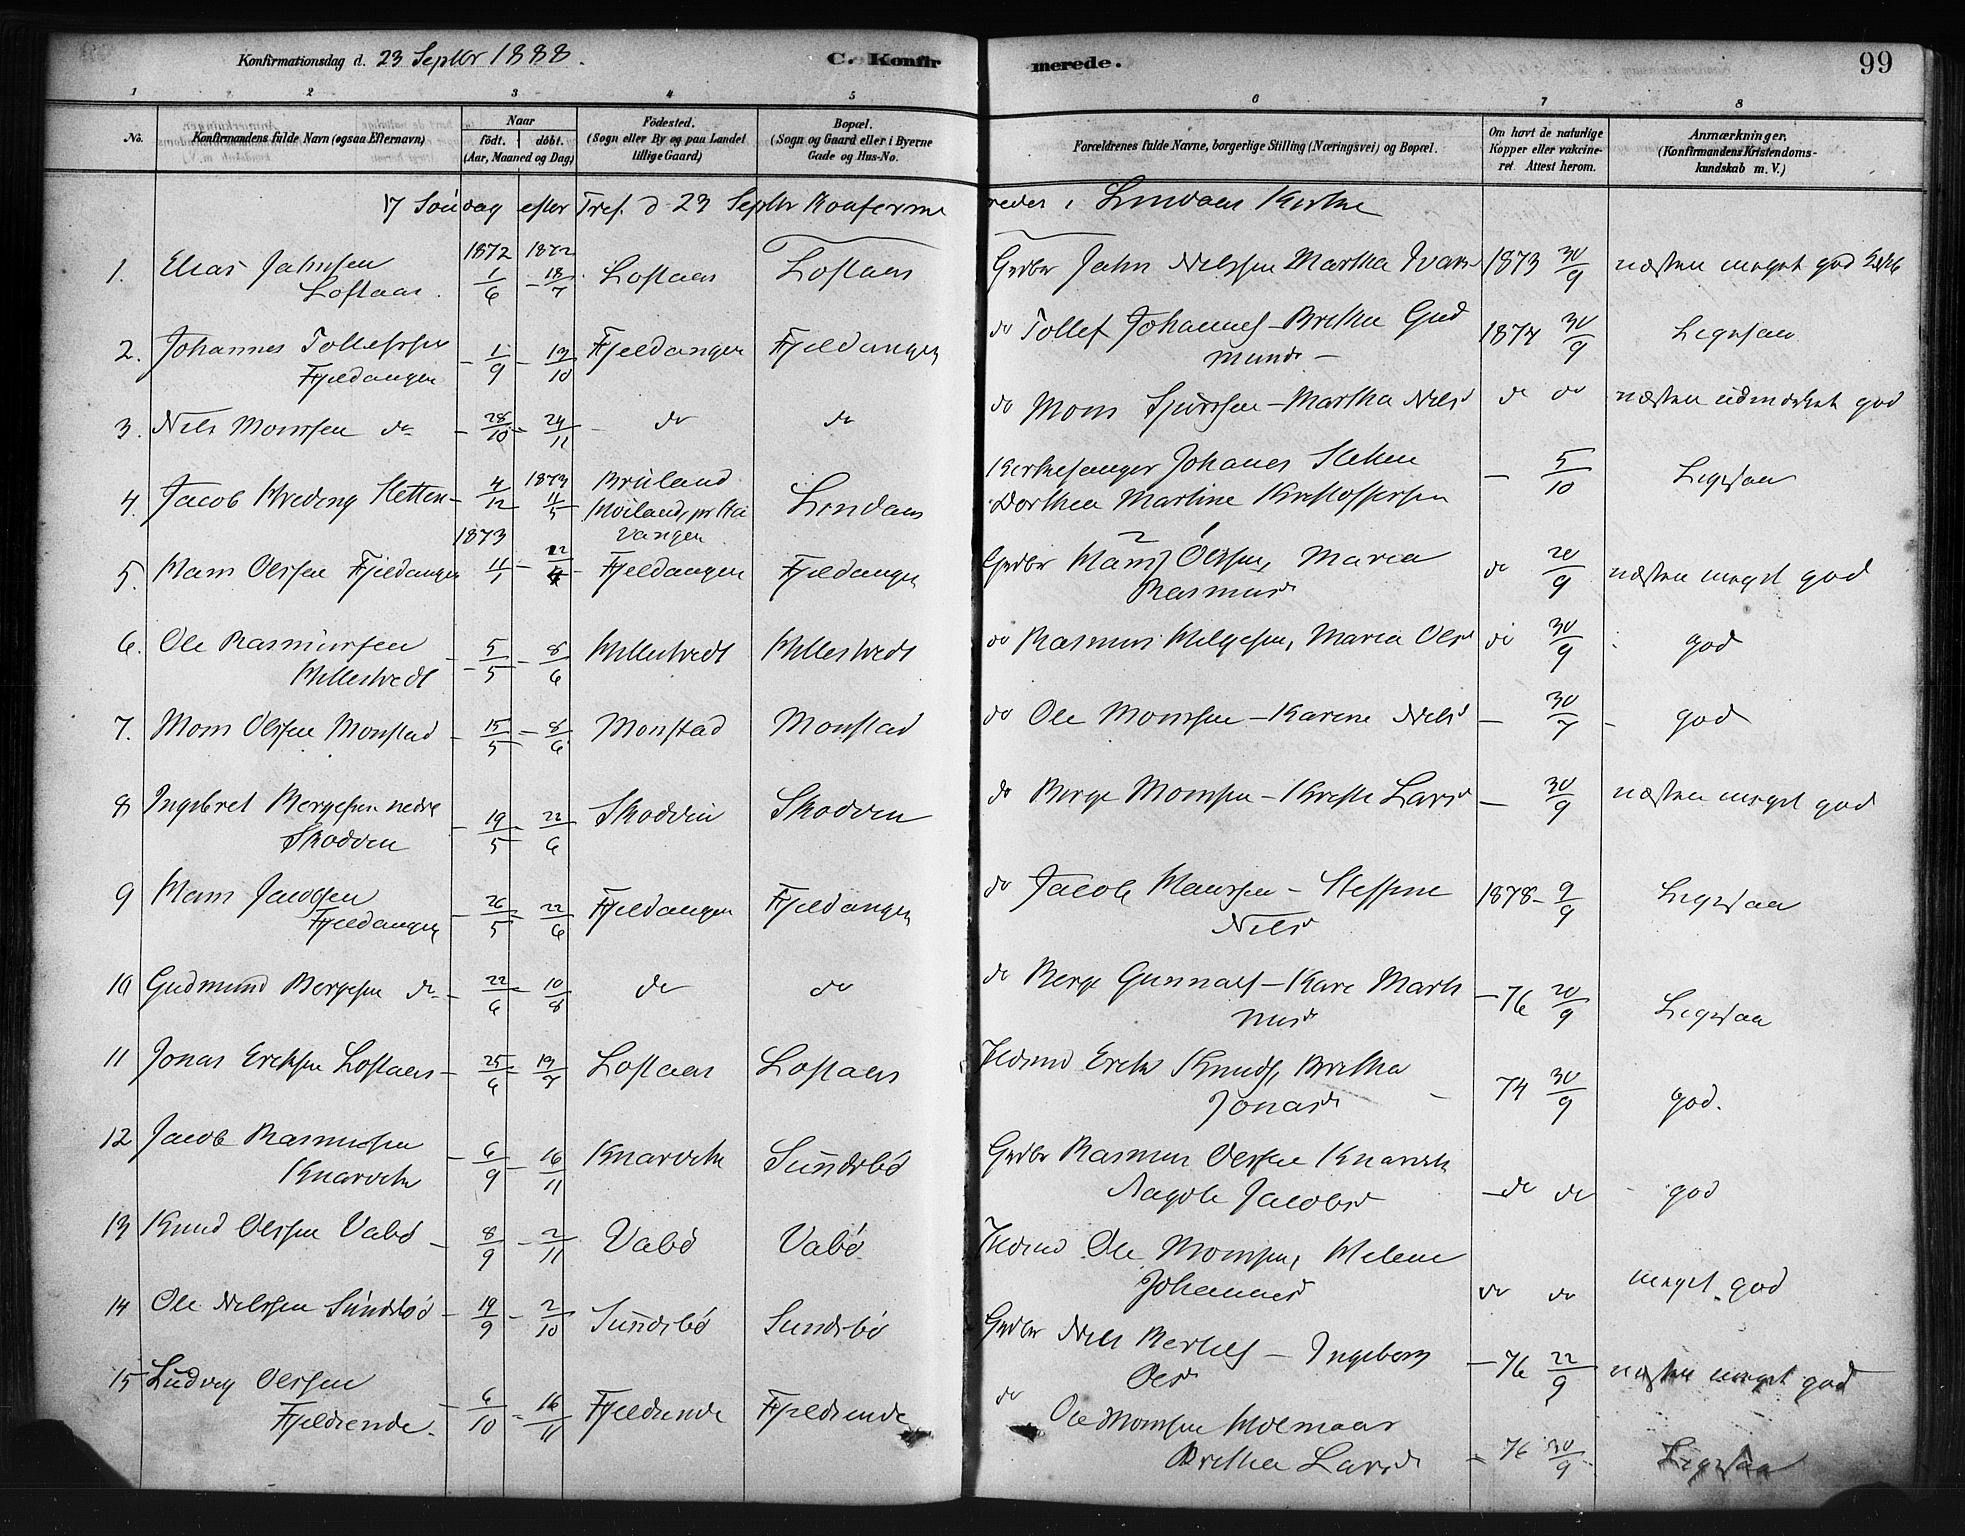 Konfirmationsdag d. 23 Septbr 1888.
C. Konfirmerede.
99
1 2 3 4 5 6 7 8
No.
Konfirmandens fulde Navn (ogsaa Efternavn)
Naar
født. døbt.
(Aar, Maaned og Dag)
Fødested.
(Sogn eller By og paa Landet
tillige Gaard)
Bopæl.
(Sogn og Gaard eller i Byerne
Gade og Hus-No.
Forældrenes fulde Navne, borgerlige Stilling (Næringsvei) og Bopæl.
Om havt de naturlige
Kopper eller vakcine-
ret. Attest herom.
Anmærkninger.
(Konfirmandens Kristendoms-
kundskab m. V.)
17 Søndag efter Tref. d 23 Septbr Konfirmeredes i Lindaas Kirke
1872 1872
1. Elias Jahnsen Loftaas. 1/6 18/7 Loftaas Loftaas Grdbr Jahn Nilssen Martha Ivars 1873 30/9 næsten meget god
2. Johannes Tollefssen Fjeldanger 1/9 13/10 Fjeldanger Fjeldanger do Tollef Johannes - Brithe Gudmunds 1874 30/9 Ligesaa
3. Nils Monssen do 28/10 24/11 do do do Mons Sjurssen - Martha Nilsd do do næsten udmærket god
4. Jacob Hveding Sletten 4/12 1873 11/5 Lindaas Kirkesanger Johanes Sletten Dorthea Martine Kristoffersen - 5/10 Ligesaa
1873
5. Hans Olssen Fjeldanger 11/1 22/4 Fjeldanger Fjeldanger Grdbr Hans Olssen, Maria Rasmusd do 20/9 næsten meget god
6. Ole Rasmussen Hillestvedt 5/5 8/6 Hillestvedt Hillestvedt do Rasmus Helgesen, Maria Olsd do 30/9 god
7. Mons Olssen Monstad 15/5 8/6 Monstad Monstad do Ole Monssen - Karene Nilsd - 30/7 god
8 Ingebret Bergesen nedre Skodven 19/5 22/6 Skodvin Skodven do Berge Monssen - Kriste Larsd - 30/9 næsten meget god
9 Hans Jacobsen Fjeldanger 26/5 22/6 Fjeldanger Fjeldanger do Jacob Hanssen - Steffine Nilsd 1878 - 9/9 Ligesaa
10 Gudmund Bergesen do 22/6 10/8 do do do Berge Gunnars - Kari Marthinusd - 76 20/9 Ligesaa
11 Jonas Eriksen Loftaas 25/6 13/7 Loftaas Loftaas Erik Knuds, Brithe Jonasd 74 30/9 god.
12 Jacob Rasmussen Knarvik 6/9 16/11 Knarvik Sundsbø Grdbr Rasmus Olssen Knarvik Ragnle Jacobsd - do do god
13 Knud Olssen Vabø 8/9 2/11 Vabø Vabø Ole Monssen, Helene Johannesd do do meget god
14 Ole Nilssen Sundsbø 19/9 2/10 Sundsbø Sundsbø Grdbr Nils Bertels - Ingeborg Olsd - 76 22/9 næsten meget god
15 Ludvig Olssen Fjeldsende. 6/10 16/11 Fjeldsende Fjeldsende do Ole Monssen Holmaas Brithe Larsd - 76 30/9 Ligesaa